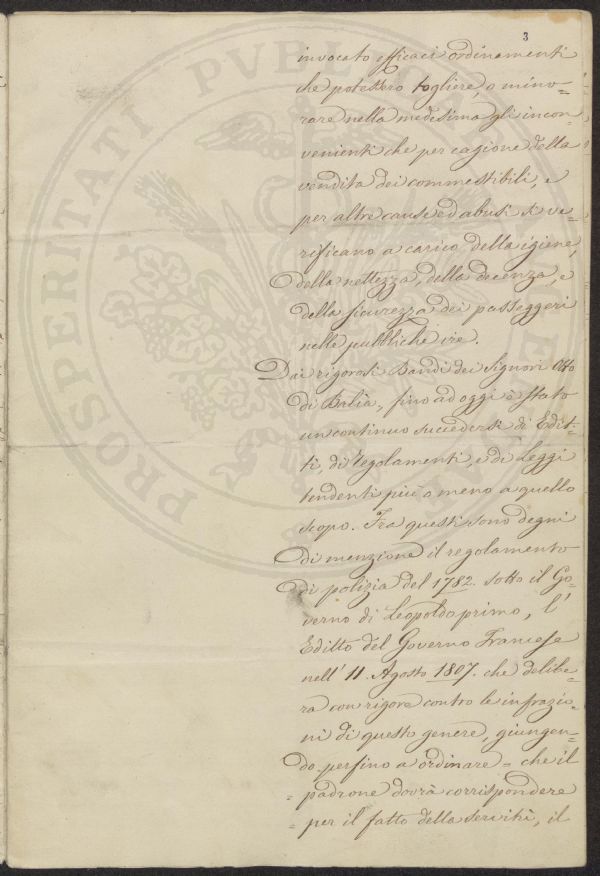 3
invocato efficaci ordinamenti
che potessero togliere, o mino=
rare nella medesima gli incon=
venienti che per cagione della
vendita dei commestibili, e
per altre cause ed abusi si ve=
rificano a carico della igiene,
della nettezza, della decenza, e
della sicurezza dei passeggeri
nelle pubbliche vie.
Dai rigorosi Bandi dei Signori Otto
di Balìa, fino ad oggi è stato
un continuo succedersi di Edit=
ti, di regolamenti, e di Leggi
tendenti più o meno a quello
scopo. Fra questi sono degni
di menzione il regolamento
di polizia del 1782. sotto il Go=
verno di Leopoldo primo, l'
Editto del Governo Francese
nell' 11. Agosto 1807. che delibe=
ra con rigore contro le infrazio=
ni di questo genere, giungen=
do perfino a ordinare = che il
= padrone dovrà corrispondere
= per il fatto della servitù, il
PROSPERITATI PUBLICAE